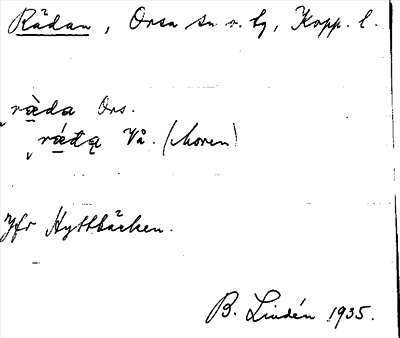 Rädan, Orsa sn o. hg, Kopp. l.
ræ̀da Ors.
rǽđą Vå. (Moren)
Jfr Hyttbäcken.
B. Lindén 1935.